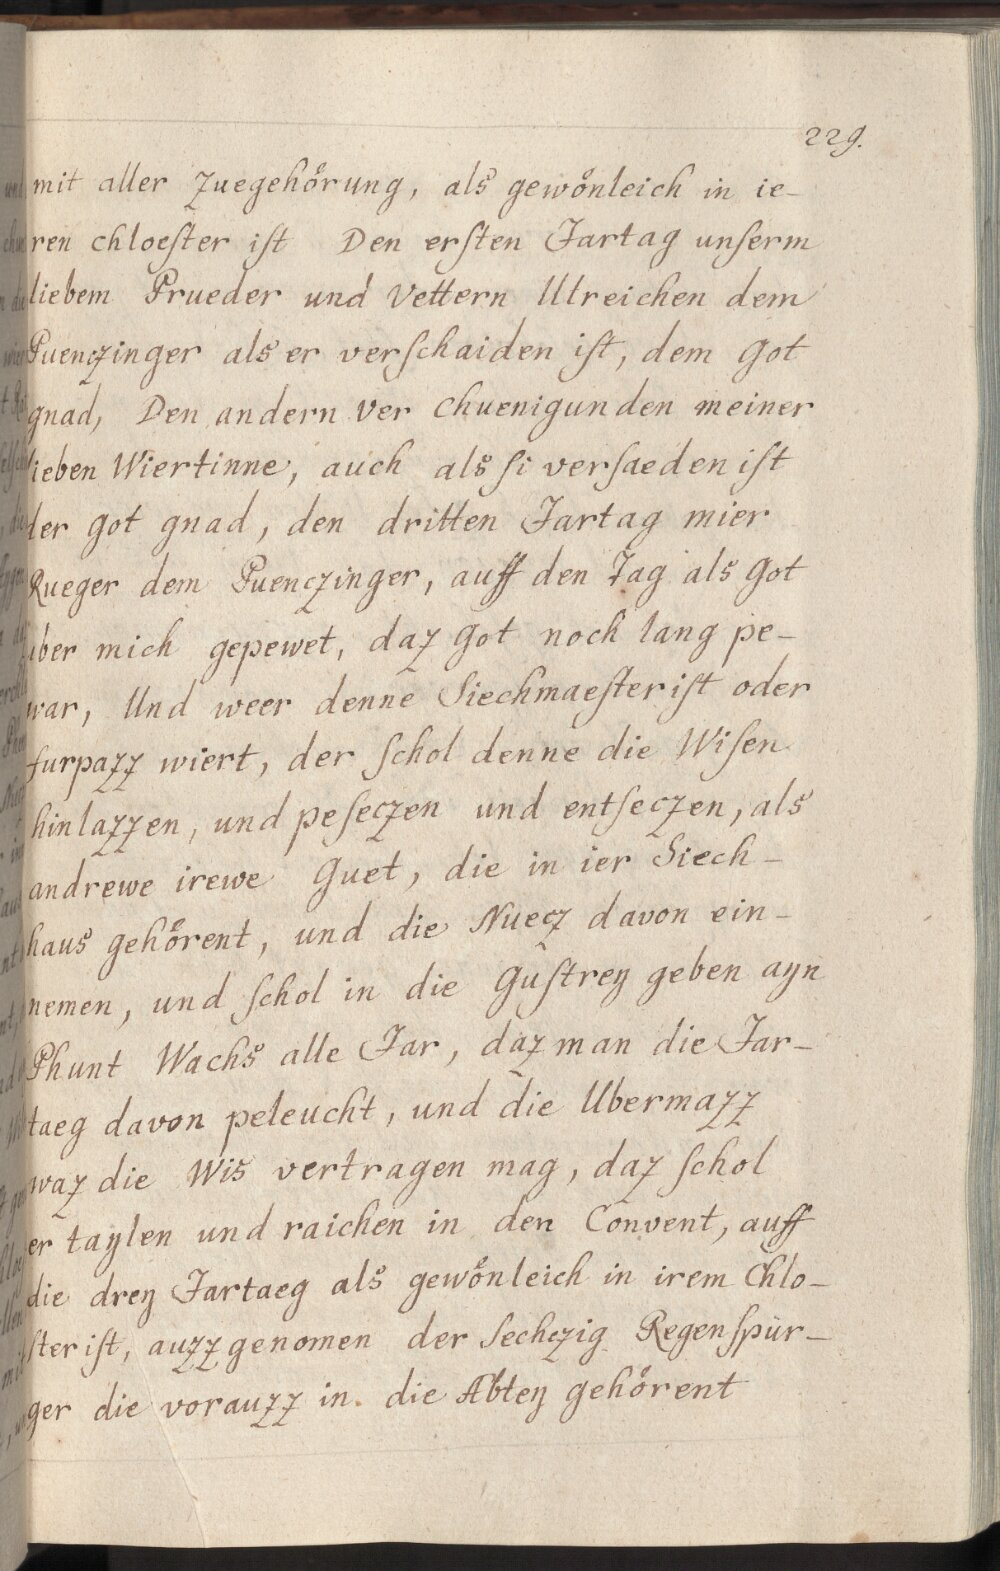 229.
mit aller Zuegehörung, als gewönleich in ie-
ren chloester ist Den ersten Jartag unserm
liebem Prueder und Vettern Ulreichen dem
Puenczinger als er verschaiden ist, dem Got
gnad, Den andern ver Chuenigunden meiner
lieben Wiertinne, auch als si versaeden ist
der Got gnad, den dritten Jartag mier
Rueger dem Puenczinger, auff den Tag als Got
uber mich gepewet, daz Got noch lang pe-
war, Und weer denne Siechmaester ist oder
furpazz wiert, der schol denne die Wisen
hinlazzen, und peseczen und entseczen, als
andrewe irewe Guet, die in ier Siech-
haus gehörent, und die Nuecz davon ein-
nemen, und schol in die Gustrey geben ayn
Phunt Wachs alle Jar, daz man die Jar-
taeg davon peleucht, und die Ubermazz
waz die Wis vertragen mag, daz schol
er taylen und raichen in den Convent, auff
die drey Jartaeg als gewönleich in irem Chlo-
ster ist, auzzgenomen der sechczig Regenspur-
ger die vorauzz in die Abtey gehörent